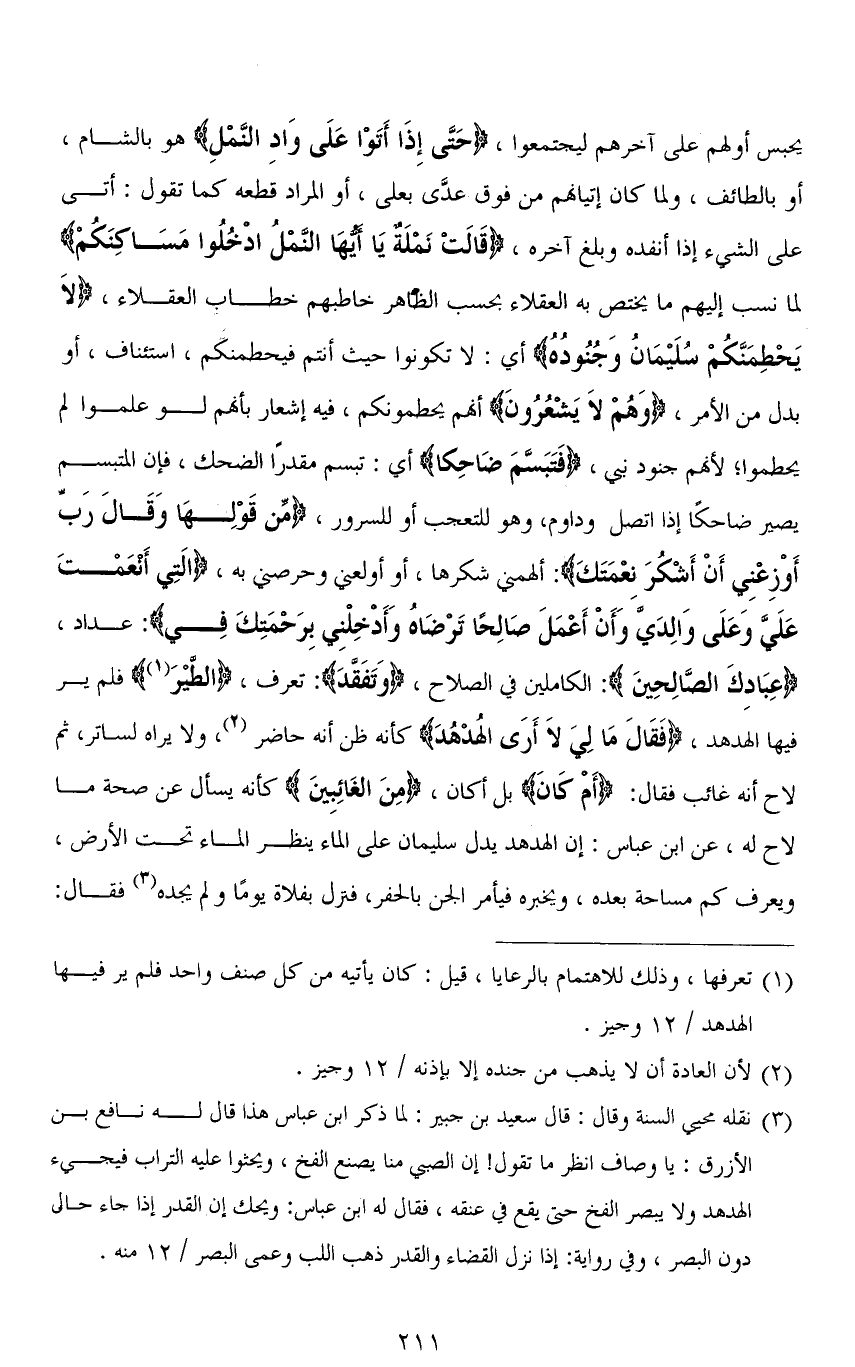 يحبس أولهم على آخرهم ليجتمعوا ، ﴿حَتَّى إِذَا أَتَوْا عَلَى وَادِ النَّمْلِ﴾ هو بالشـــام ،
أو بالطائف ، ولما كان إتيانهم من فوق عدَّى بعلى ، أو المراد قطعه كما تقول : أتـــى
على الشيء إذا أنفده وبلغ آخره ، ﴿قَالَتْ نَمْلَةٌ يَا أَيُّهَا النَّمْلُ ادْخُلُوا مَسَـــاكِنَكُمْ﴾
لما نسب إليهم ما يختص به العقلاء بحسب الظاهر خاطبهم خطـــاب العقـــلاء ، ﴿لاَ
يَحْطِمَنَّكُمْ سُلَيْمَانُ وَجُنُودُهُ﴾ أي : لا تكونوا حيث أنتم فيحطمنكم ، استئناف ، أو
بدل من الأمر ، ﴿وَهُمْ لاَ يَشْعُرُونَ﴾ أنهم يحطمونكم ، فيه إشعار بأنهم لـــو علمـــوا لم
يحطموا؛ لأنهم جنود نبي ، ﴿فَتَبَسَّمَ ضَاحِكا﴾ أي : تبسم مقدرًا الضحك ، فإن المتبســـم
يصير ضاحكًا إذا اتصل وداوم، وهو للتعجب أو للسرور ، ﴿مِّن قَوْلِـــهَا وَقَـــالَ رَبِّ
أَوْزِعْنِي أَنْ أَشْكُرَ نِعْمَتَكَ﴾: ألهمني شكرها ، أو أولعني وحرصني به ، ﴿الَتِي أَنْعَمْـــتَ
عَلَيَّ وَعَلَى وَالِدَيَّ وَأَنْ أَعْمَلَ صَالِحًا تَرْضَاهُ وَأَدْخِلْنِي بِرَحْمَتِكَ فِـــي﴾: عـــداد ،
﴿عِبَادِكَ الصَّالِحِينَ ﴾: الكاملين في الصلاح ، ﴿وَتَفَقَّدَ﴾: تعرف ، ﴿الطَّيْرَ(١)﴾ فلم يـــر
فيها الهدهد ، ﴿فَقَالَ مَا لِيَ لاَ أَرَى الْهُدْهُدَ﴾ كأنه ظن أنه حاضر (٢)، ولا يراه لساتر، ثم
لاح أنه غائب فقال: ﴿أَمْ كَانَ﴾ بل أكان ، ﴿مِنَ الغَائِبِينَ ﴾ كأنه يسأل عن صحة مـــا
لاح له ، عن ابن عباس : إن الهدهد يدل سليمان على الماء ينظـــر المـــاء تحـــت الأرض ،
ويعرف كم مساحة بعده ، ويخبره فيأمر الجن بالحفر، فنزل بفلاة يومًا و لم يجده(٣) فقـــال:
(١) تعرفها ، وذلك للاهتمام بالرعايا ، قيل : كان يأتيه من كل صنف واحد فلم ير فيـــها
الهدهد / ١٢ وجيز .
(٢) لأن العادة أن لا يذهب من جنده إلا بإذنه / ١٢ وجيز .
(٣) نقله محيي السنة وقال : قال سعيد بن جبير : لما ذكر ابن عباس هذا قال لـــه نـــافع بـــن
الأزرق : يا وصاف انظر ما تقول! إن الصبي منا يصنع الفخ ، ويحثوا عليه التراب فيجـــيء
الهدهد ولا يبصر الفخ حتى يقع في عنقه ، فقال له ابن عباس: ويحك إن القدر إذا جاء حـالى
دون البصر ، وفي رواية: إذا نزل القضاء والقدر ذهب اللب وعمى البصر / ١٢ منه .
٢١١